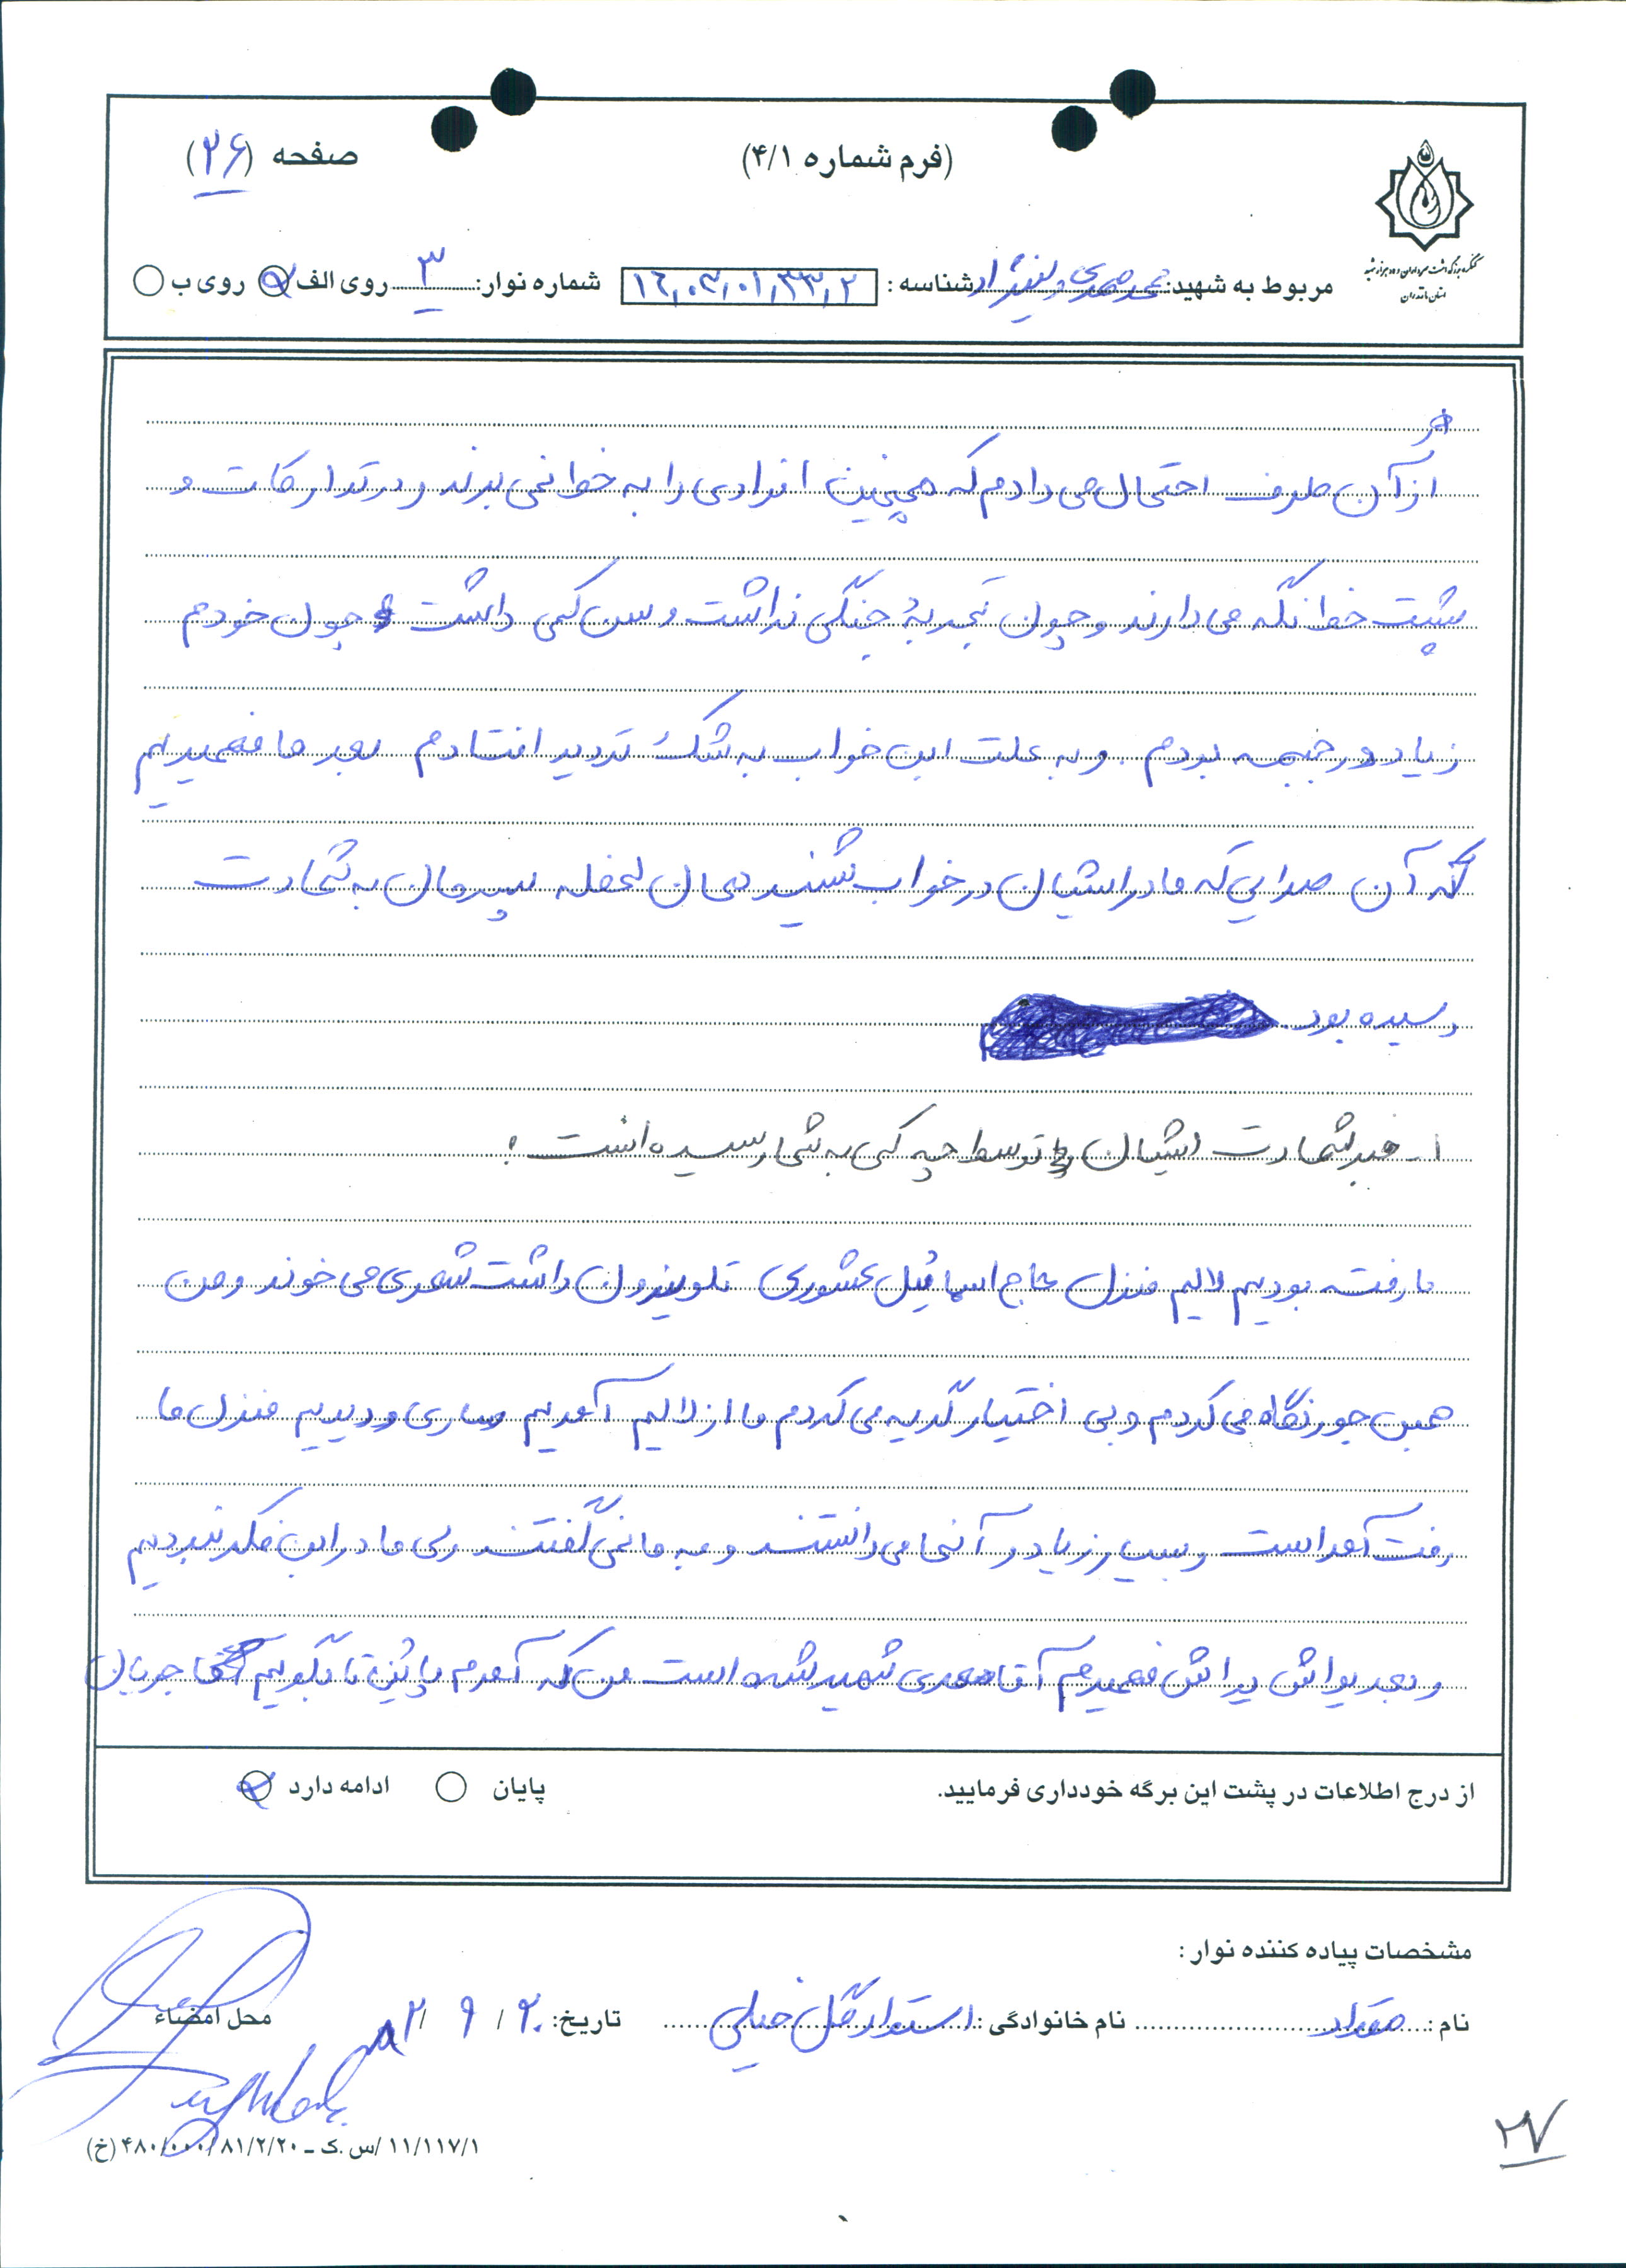 (فرم شماره ۴/۱)
صفحه (۲۶)
کنگره بزرگداشت سرداران و ده هزار شهید
استان مازندران
مربوط به شهید: محمد مهدی شناسه: ۱۶,۰۳,۰۱,۳۳,۲ شماره نوار: ۳ روی الف روی ب
از آن طرف احتمال می دادم که همچنین افرادی را به خط نمی برند و در تدارکات و
پشت خط نگه می دارند و چون تجربهٔ جنگی نداشت و سن کمی داشت چون خودم
زیاد در جبهه بودم. و به علت این خواب به شک تردید افتادم بعد ما فهمیدیم
که آن صدایی که مادر ایشان در خواب شنید همان لحظه پسرمان به شهادت
رسیده بود
۱- خبر شهادت ایشان توسط چه کسی به شما رسیده است؟
ما رفته بودیم لالیم منزل حاج اسمائیل عشوری تلویزون داشت شعری می خوند و من
همین جور نگاه می کردم و بی اختیار گریه می کردم ما از لالیم آمدیم ساری و دیدیم منزل ما
رفت آمد است و بسیار زیاد و آنها می دانستند و به ما نمی گفتند ولی ما در این فکر نبودیم
و بعد یواش یواش فهمیدم آقا مهدی شهید شده است من که آمدم پائین تا بگویم جریان
از درج اطلاعات در پشت این برگه خودداری فرمایید.
پایان ادامه دارد
مشخصات پیاده کننده نوار:
نام: مقداد نام خانوادگی: استوار گل خیلی تاریخ: ۲۰/ ۹ /۸۲ محل امضاء
۱۱/۱۱۷/۱ /س.ک – ۸۱/۲/۲۰/۰۰۰/۴۸۰ (خ)
۲۷